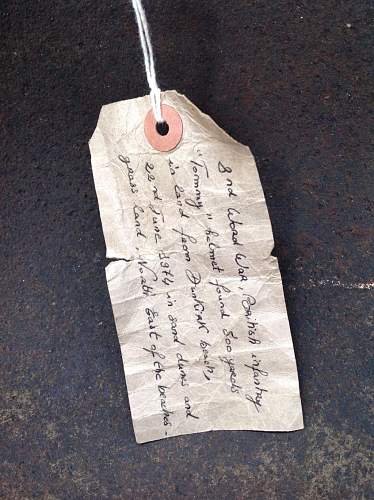 2nd Word War, British infantry
"Tommy" helmet found 500 yards
in land from Dunkirk beach,
22nd June 1974 in sand dums and
grass land. North East of the beaches-